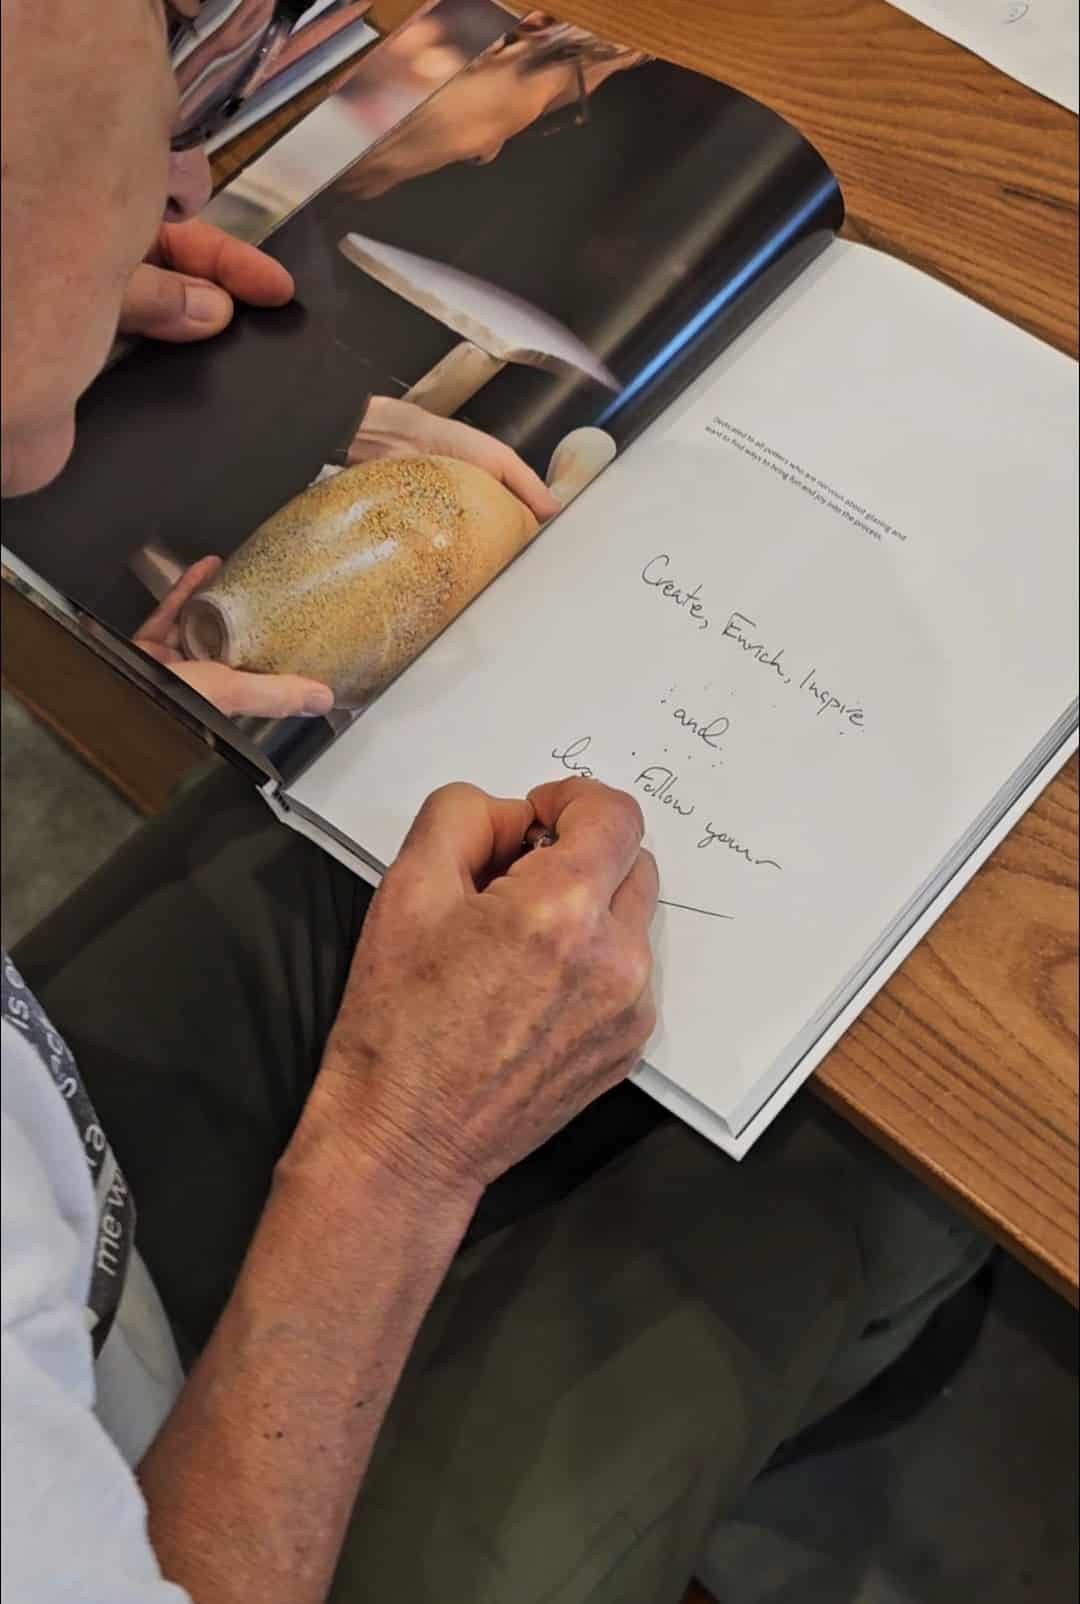 Dedicated to all potters who are nervous about glazing and
want to find ways to bring fun and joy into the process.
Create, Enrich, Inspire
and
Follow your
is
me w